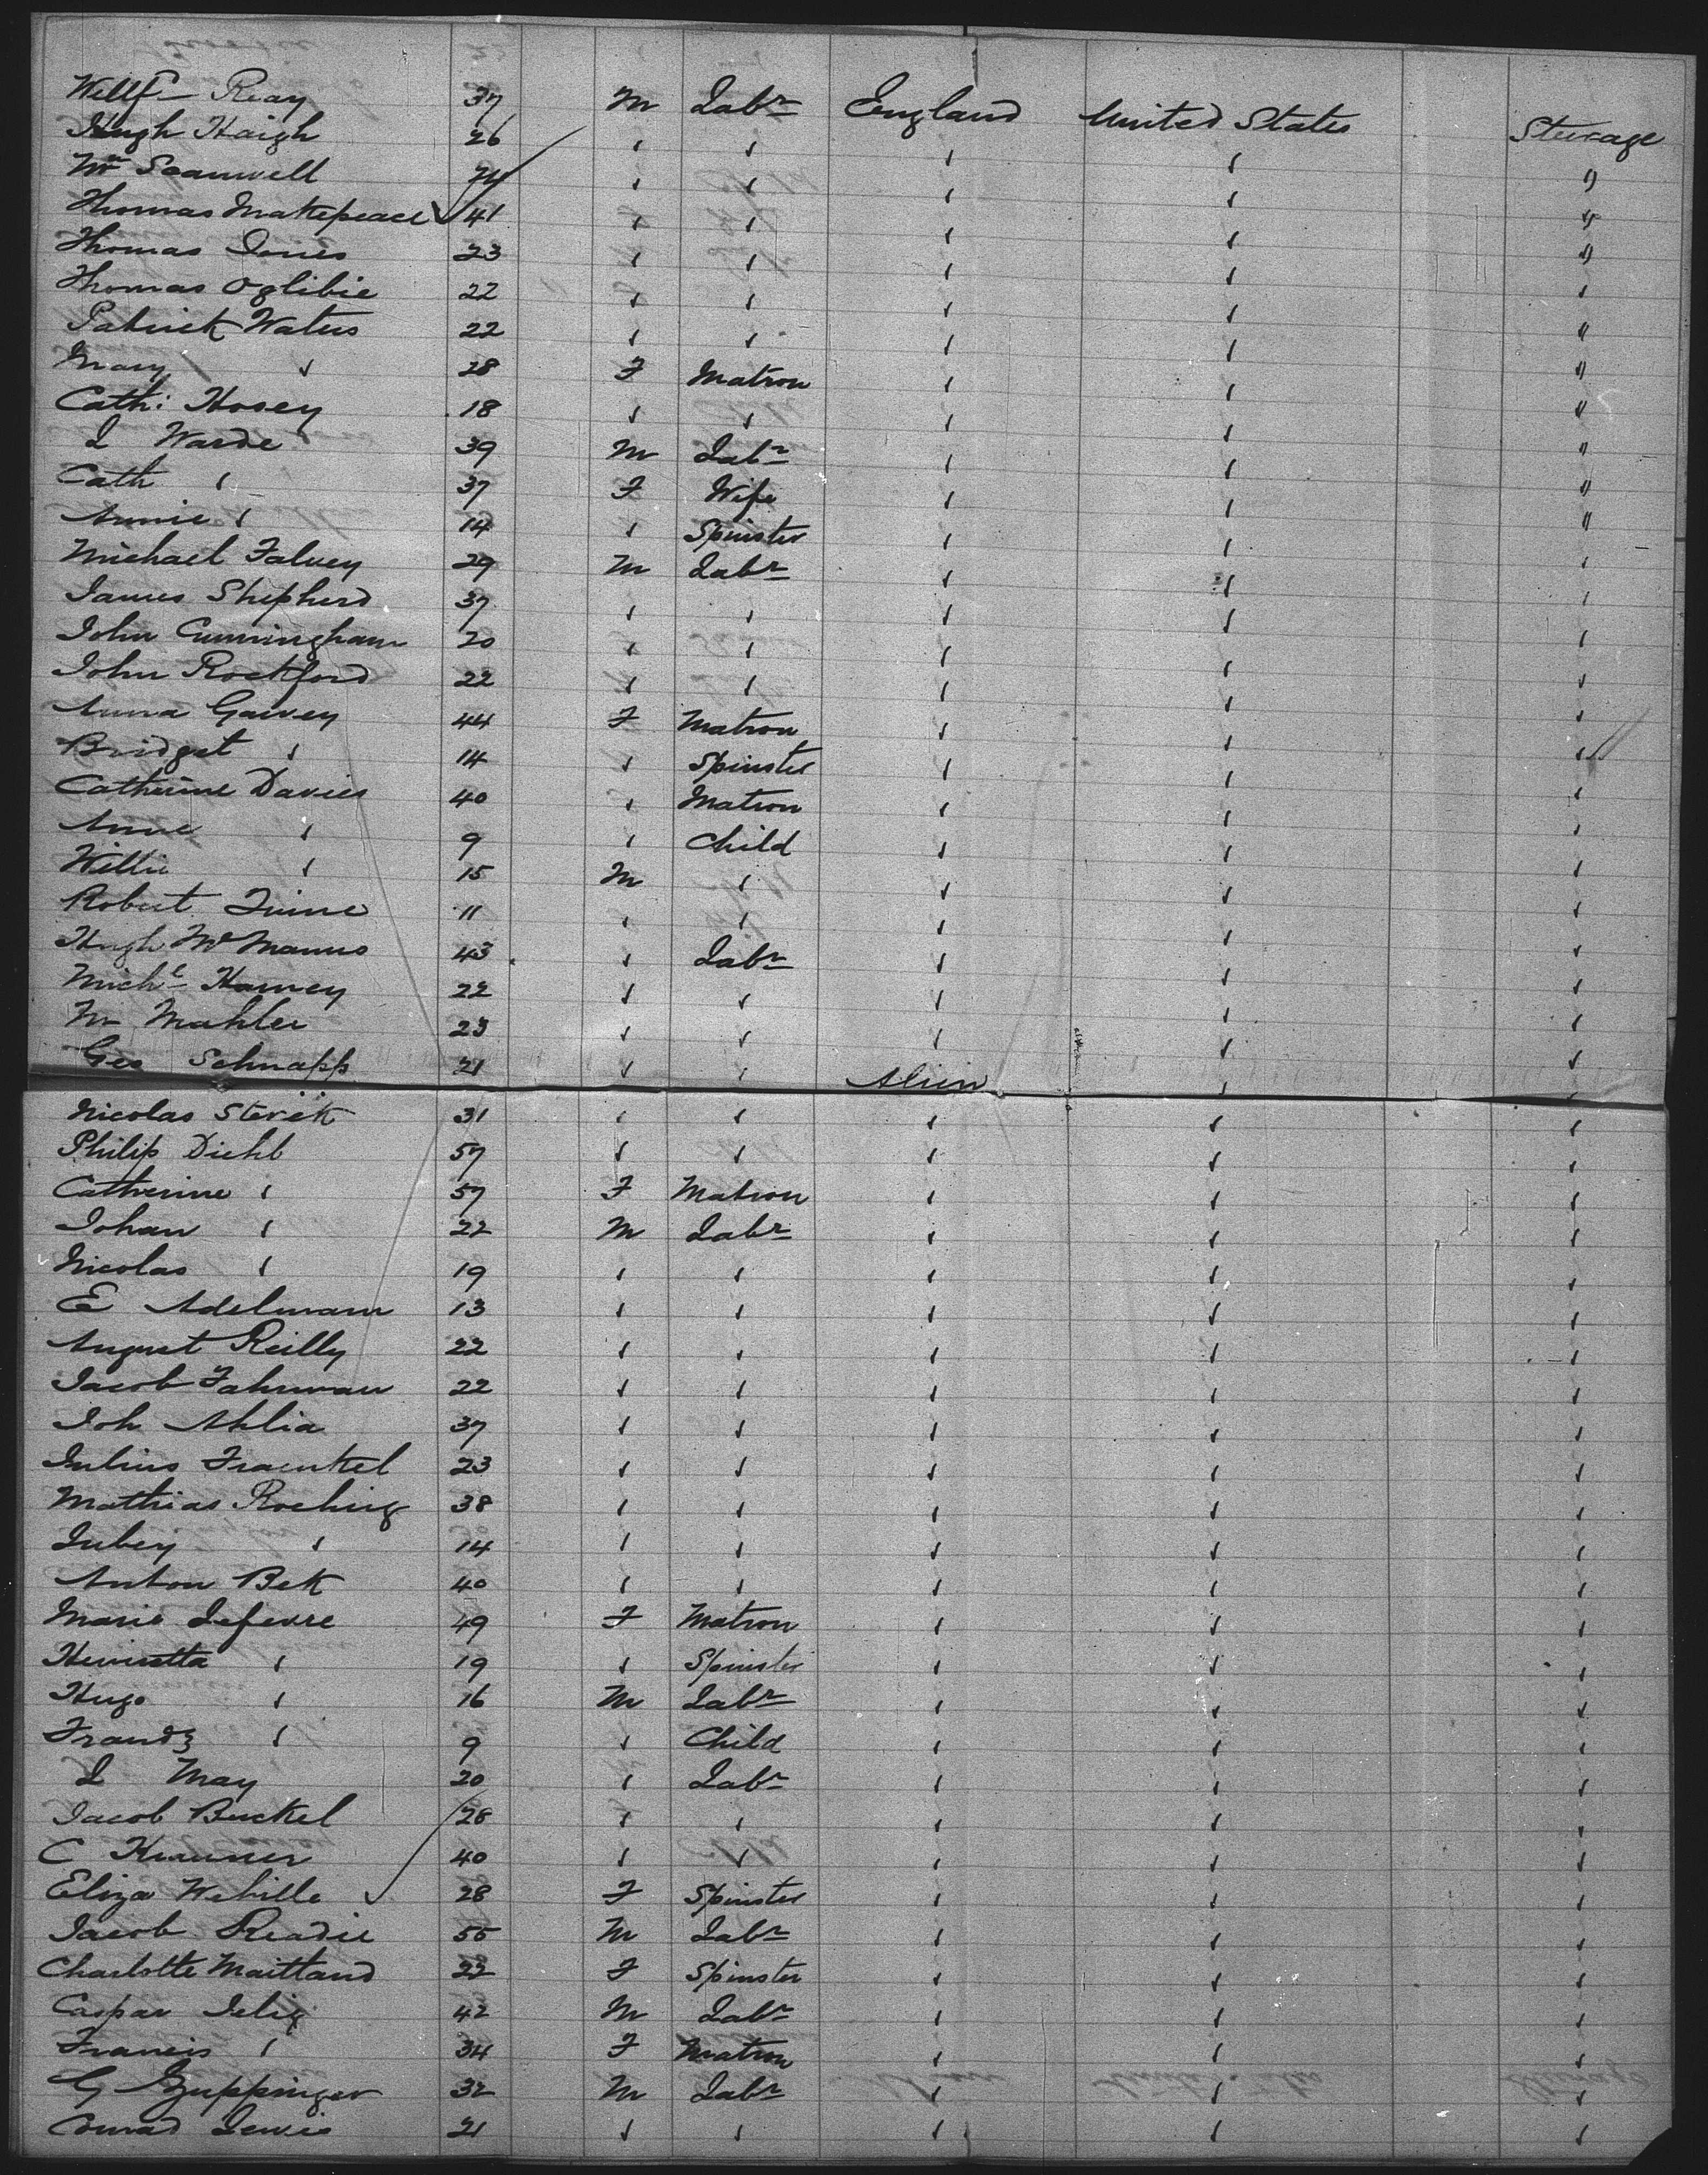 Willf Reay 37 M Labr England United States Steerage
Hugh Haigh 26 " " " " "
Wm Scanwell 24 " " " " "
Thomas Makepeace 41 " " " " "
Thomas Jones 23 " " " " "
Thomas Oglibie 22 " " " " "
Patrick Waters 22 " " " " "
Mary " 28 F Matron " " "
Cath: Hosey 18 " " " " "
J Warde 39 M Labr " " "
Cath " 37 F Wife " " "
Annie " 14 " Spinster " " "
Michael Falvey 29 M Labr " " "
James Shepherd 37 " " " " "
John Cunningham 20 " " " " "
John Rockford 22 " " " " "
Anna Garvey 44 F Matron " " "
Bridget " 14 " Spinster " " "
Catherine Davies 40 " Matron " " "
Anne " 9 " Child " " "
Willie " 15 M " " " "
Robert 11 " " " " "
Hugh McManus 43 " Labr " " "
Michl Harvey 22 " " " " "
M Mahler 23 " " " " "
Geo Schnapp 21 " " Alien " "
Nicolas Sterek 31 " " " " "
Philip Diehl 57 " " " " "
Catherine " 57 F Matron " " "
Johan " 22 M Labr " " "
Nicolas " 19 " " " " "
E Adelmann 13 " " " " "
August Reilly 22 " " " " "
Jacob Fahrman 22 " " " " "
Joh Ahlia 37 " " " " "
Julius Fraenkel 23 " " " " "
Mathias Roehrig 38 " " " " "
" 14 " " " " "
Anton Bek 40 " " " " "
Marie Lefevre 49 F Matron " " "
Henrietta " 19 " Spinster " " "
Hugo " 16 M Labr " " "
Frandz " 9 " Child " " "
J May 20 " Labr " " "
Jacob Buckel 28 " " " " "
C 40 " " " " "
Eliza Wehille 28 F Spinster " " "
Jacob Readie 55 M Labr " " "
Charlotte Maitland 22 F Spinster " " "
Caspar Selig 42 M Labr " " "
Francis " 34 F Matron " " "
G Guppinger 32 M Labr " " "
Conrad Lewis 21 " " " " "